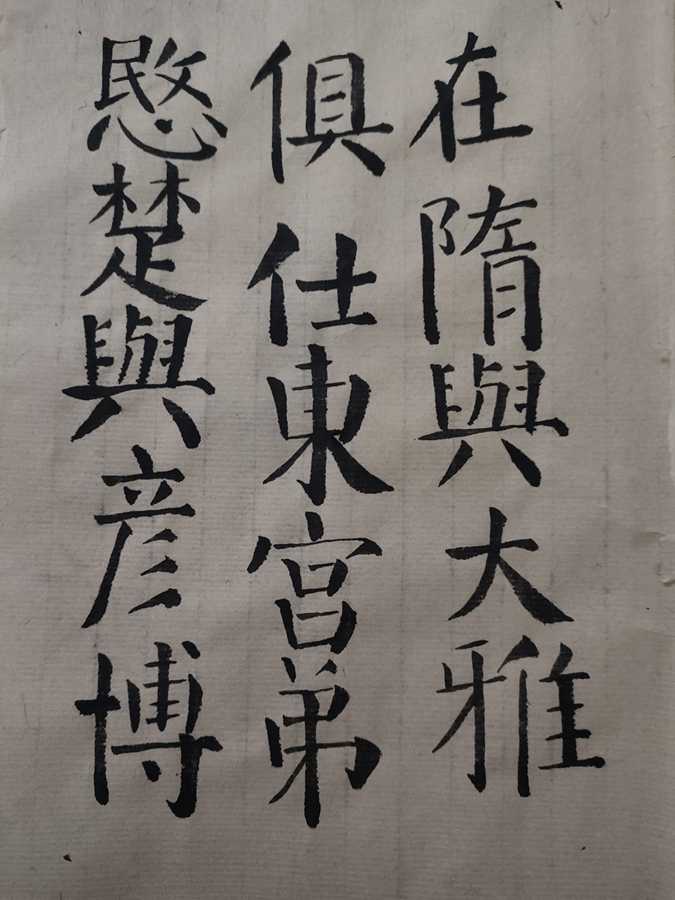 在隋與大雅
俱仕東宫弟
愍楚與彦博